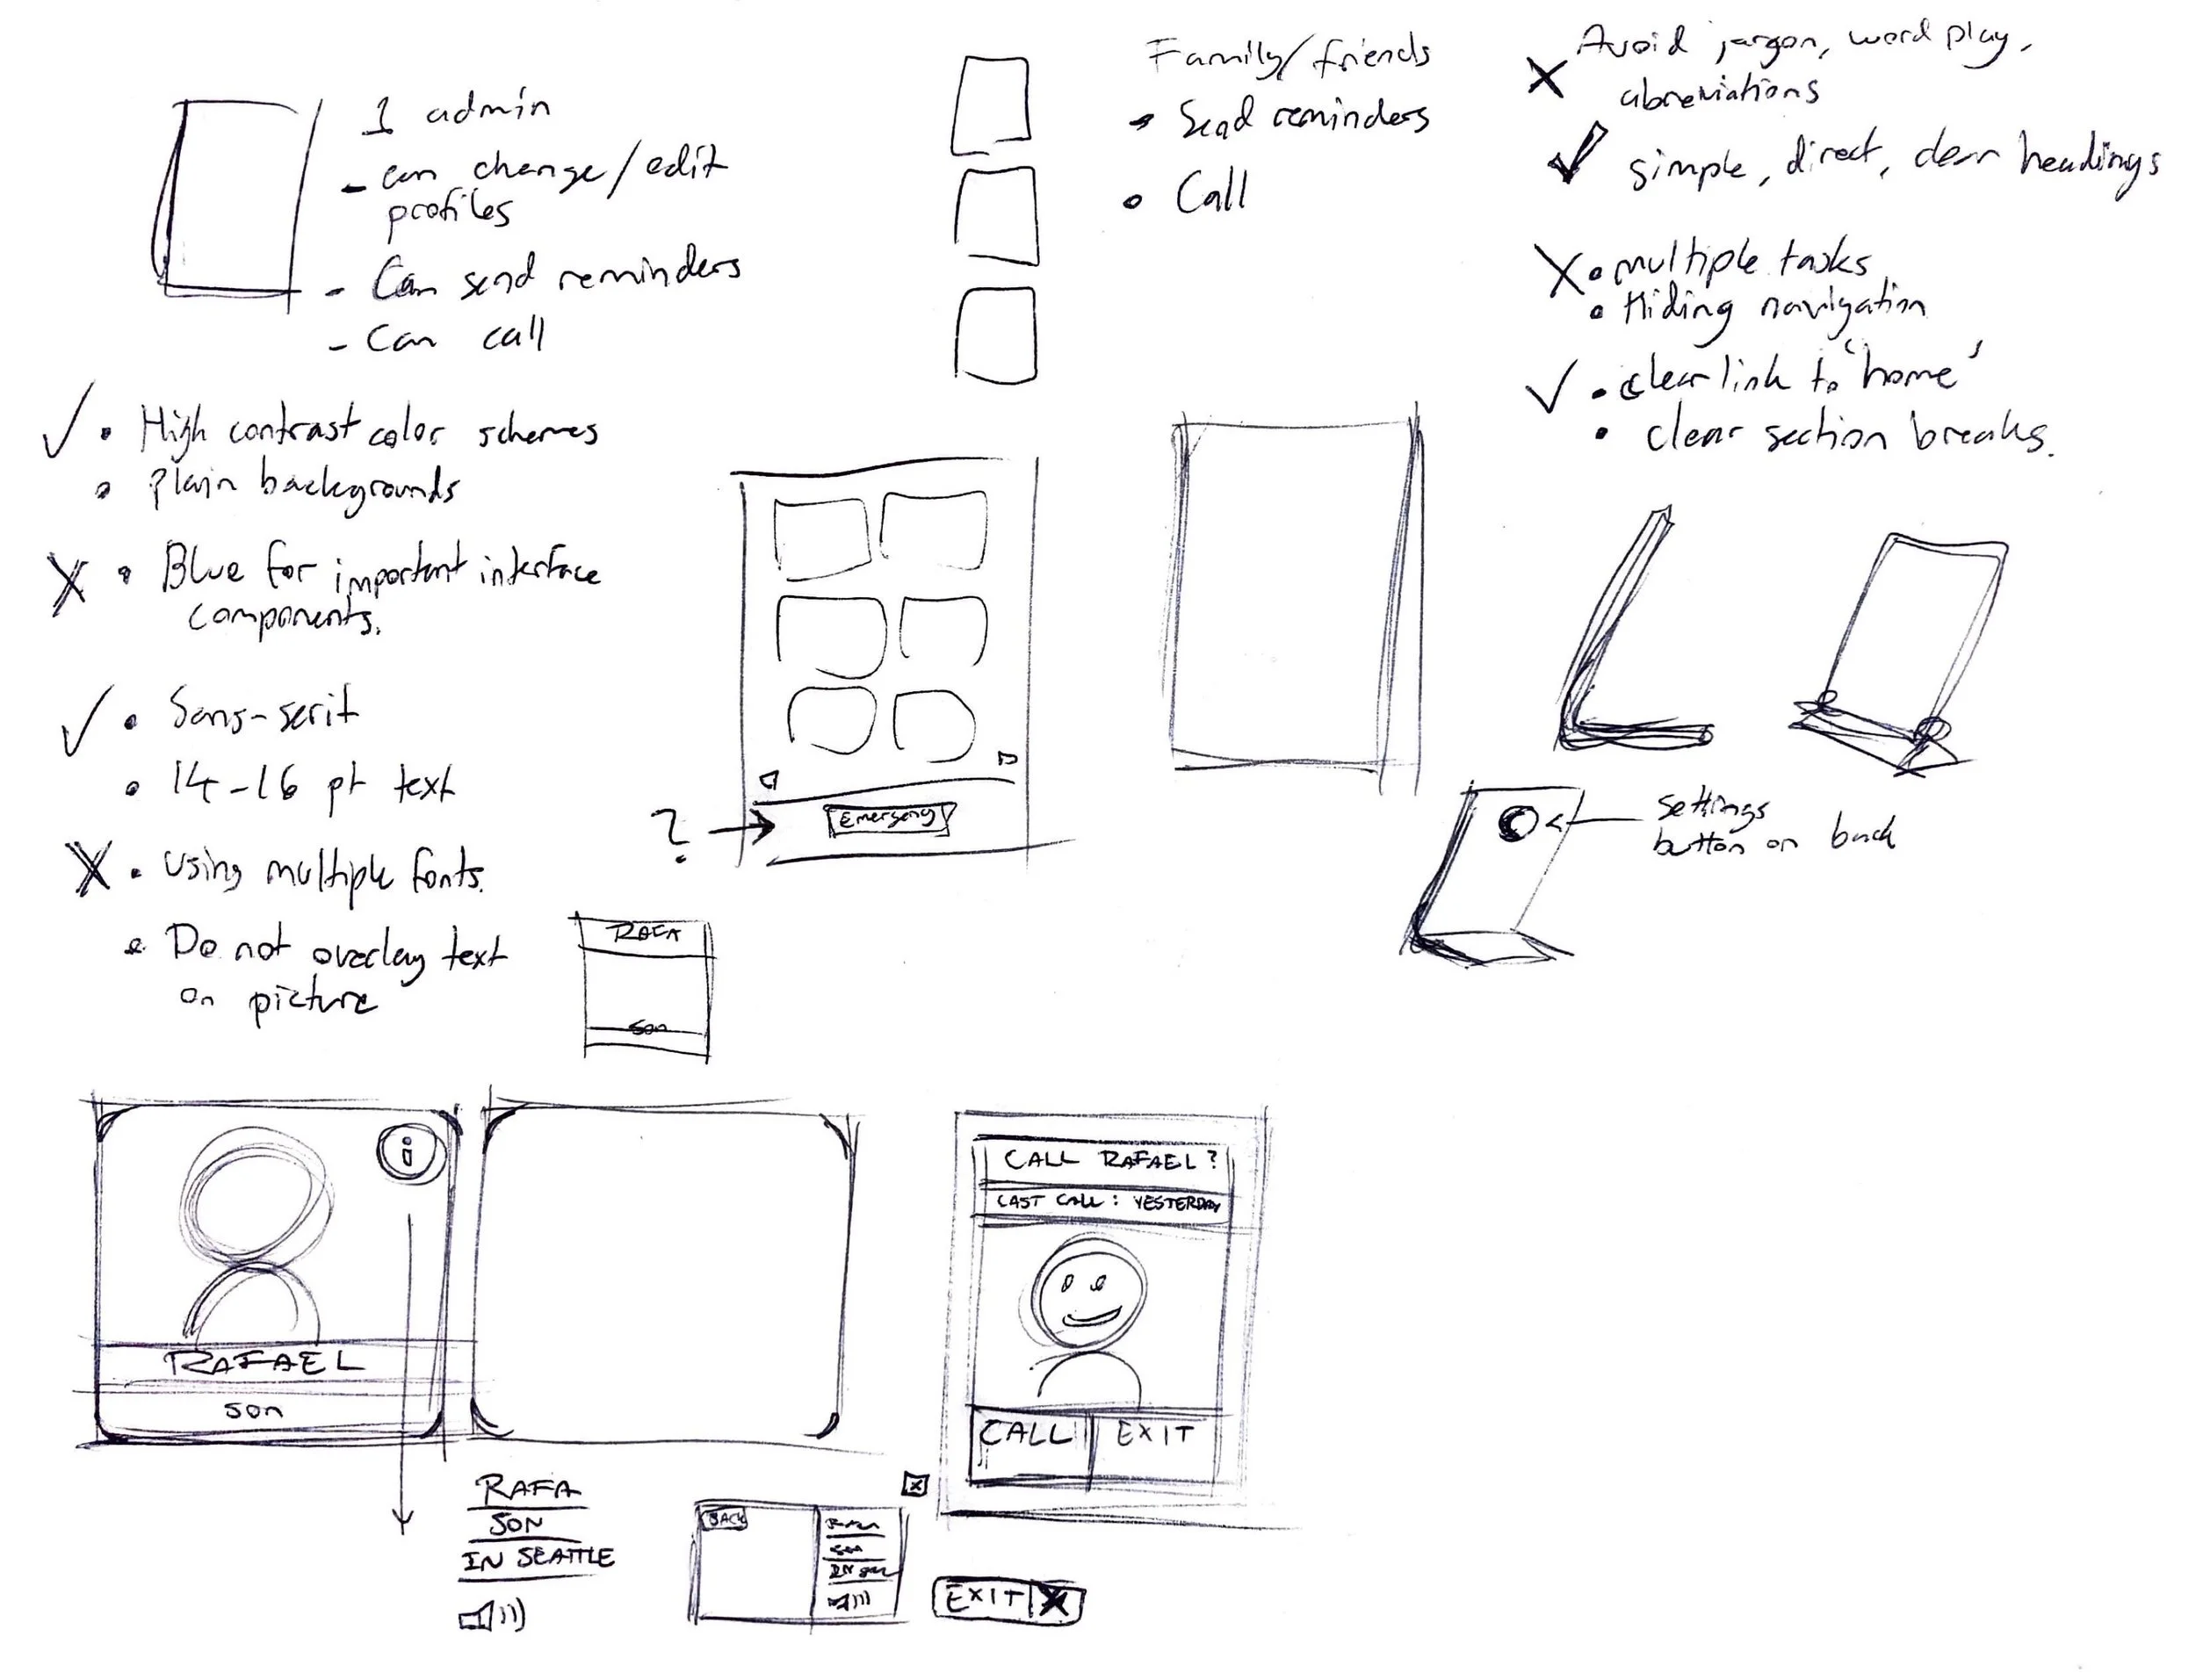 1 admin
- can change/edit
profiles
- Can send reminders
- Can call
Family/friends
• Send reminders
• Call
Avoid jargon, word play,
abreviations
simple, direct, clear headings
• multiple tasks
• Hiding navigation
• clear link to 'home'
• clear section breaks.
• High contrast color schemes
• Plain backgrounds
• Blue for important interface
components.
• Sans-serif
• 14-16 pt text
• Using multiple fonts.
• Do not overlay text
on picture
?
Emergency
settings
button on back
RAFA
son
i
RAFAEL
son
CALL RAFAEL?
LAST CALL: YESTERDAY
CALL
EXIT
RAFA
SON
IN SEATTLE
BACK
EXIT X